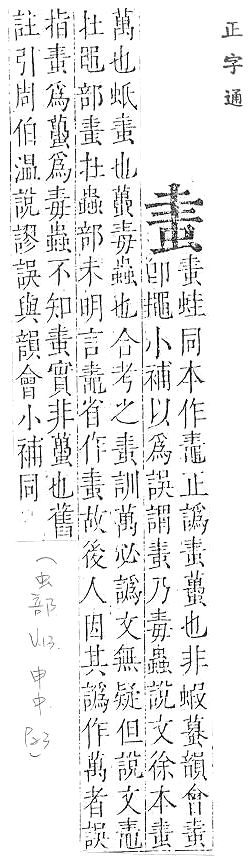 正字通
䖯
䖯蛙同本作鼃正譌䖯蠆也非蝦蟇韻會䖯
卽蠅小補以爲誤謂䖯乃毒蟲說文徐本䖯
萬也蚔䖯也蠆毒蟲也合考之䖯訓萬必譌文無疑但說文鼃
在黽部䖯在蟲部未明言鼃省作䖯故後人因其譌作萬者誤
指䖯爲蠆爲毒蟲不知䖯實非蠆也舊
註引周伯溫說謬誤與韻會小補同
(虫部 V.13. 申中 P.23)